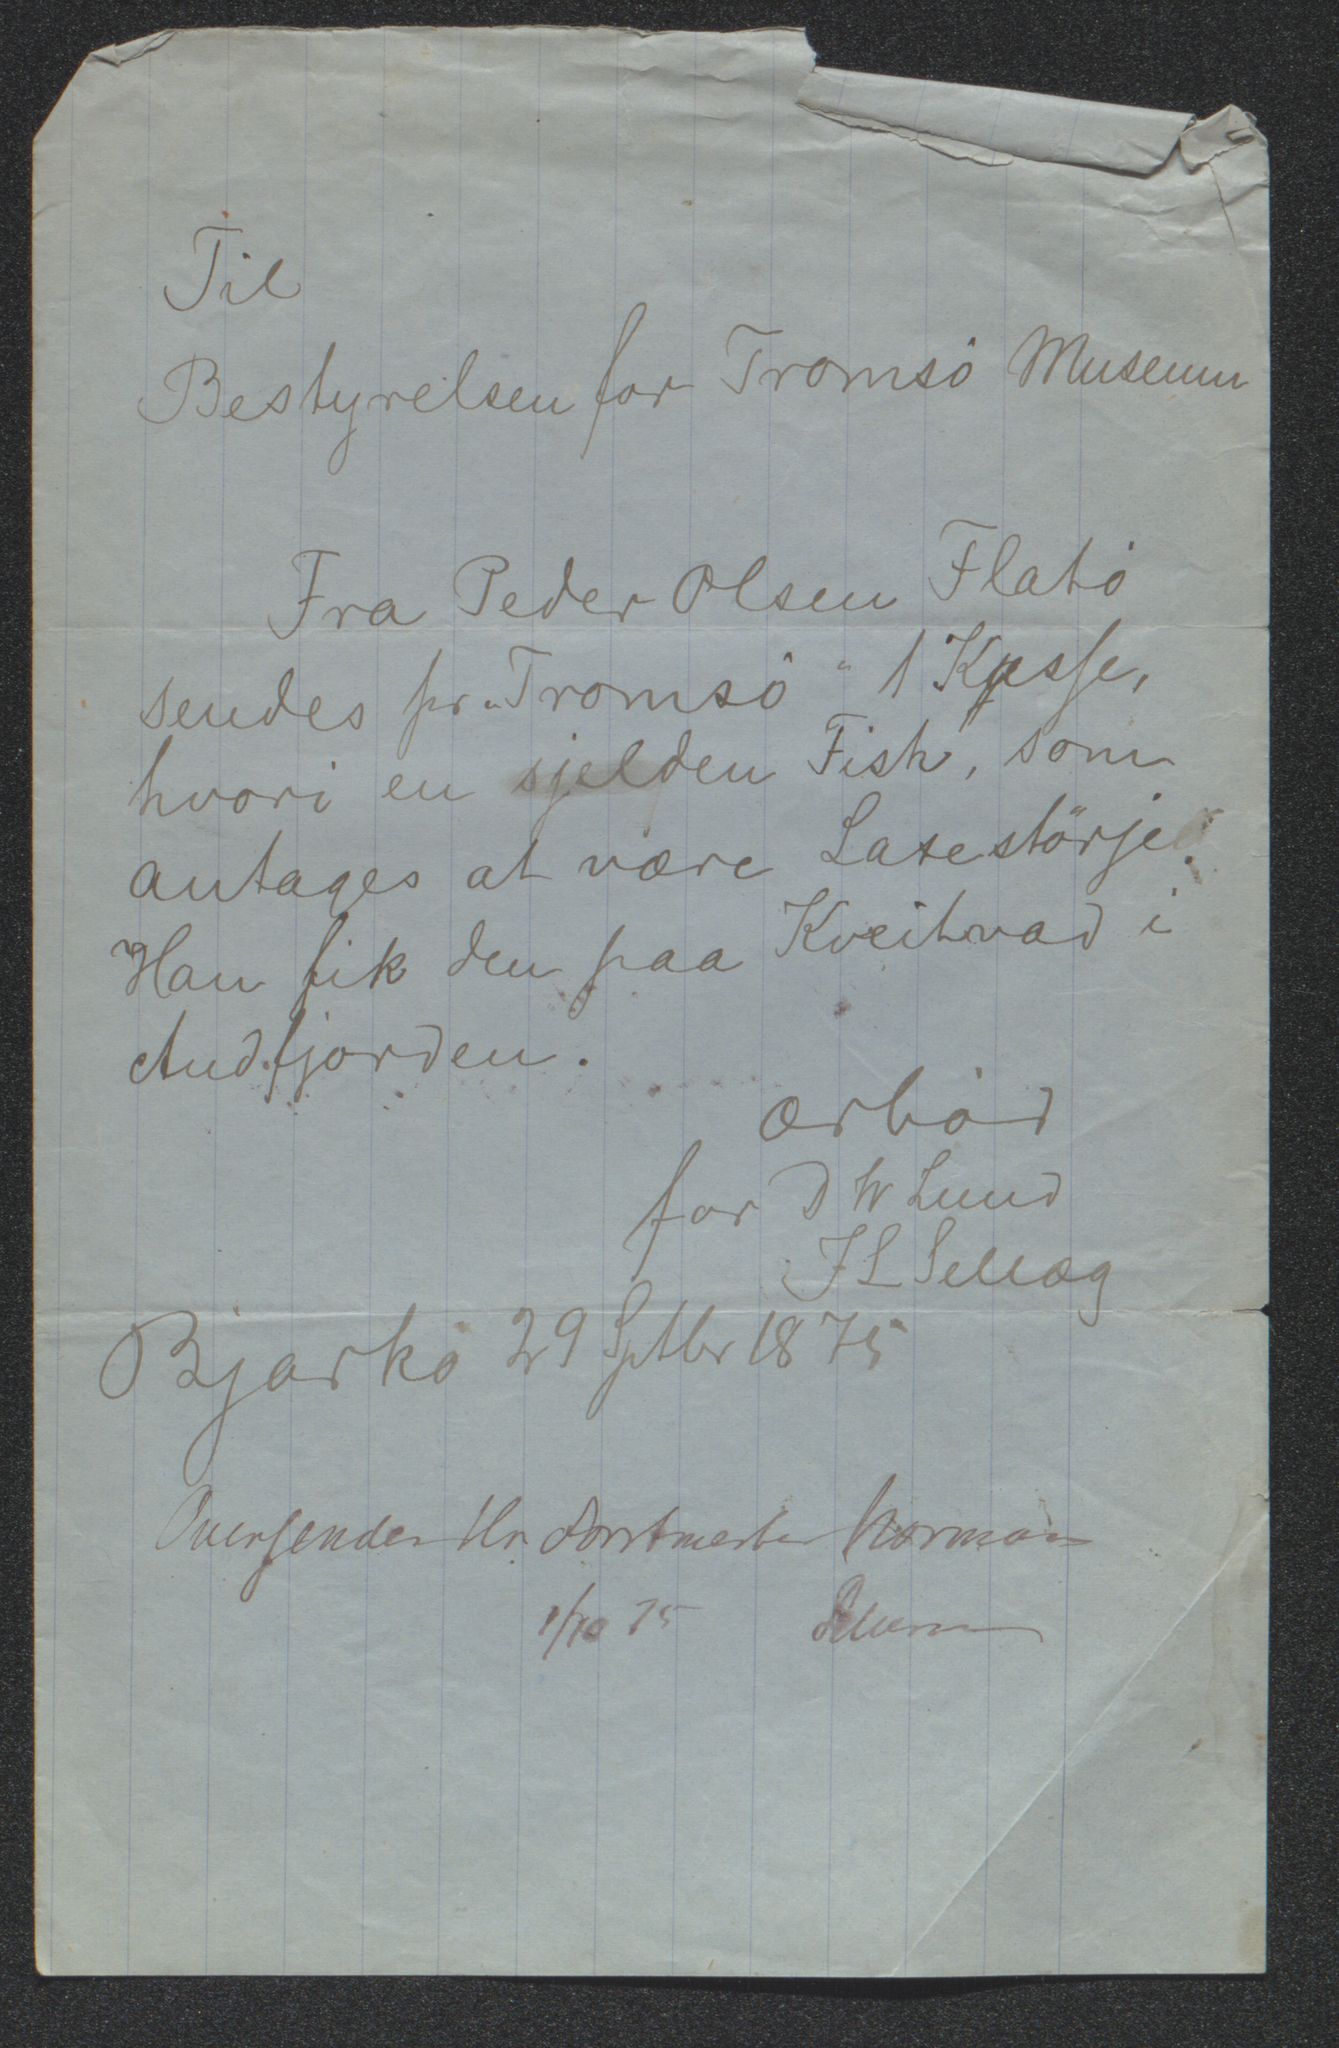 Til
Bestyrelsen for Tromsö Museum
Fra Peder Olsen Flatö
sendes pr. "Tromsö" 1 Kasse,
hvori en sjelden Fisk, som
antages at være Laxestörje.
Han fik den paa Kveitvad i
Andfjorden.
Ærbød
for D W Lund
J L Selläg
Bjarkö 29 Septbr 1875
Oversendes Hr. Forstmester Norman
1/10 75